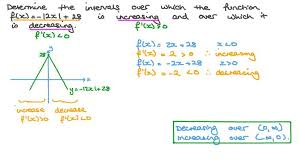 Determine the intervals over which the function
f(x)=-|2x|+28 is increasing and over which it
is decreasing.
f'(x)>0
f'(x)<0
f(x)= 2x+28 x<0
f'(x)= 2 > 0 ∴ increasing
f(x)= -2x+28 x>0
f'(x)= -2 <0 ∴ decreasing
y
28
x
y=-|2x|+28
increase decrease
f'(x)>0 f'(x)<0
Decreasing over (0,∞)
Increasing over (-∞,0).